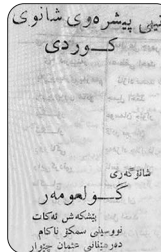 پیشرەوی شانۆی
کـــوردی
شانۆگەری
گـــولعومەر
پیشکەش ئەکات
نووسینی سمکۆ ناکام
دەرهێنانی عثمان چێوار